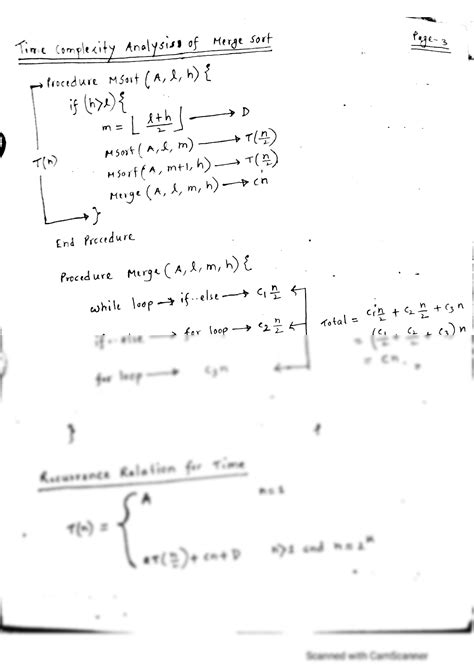 Time Complexity Analysis of Merge Sort
Page-3
Procedure MSort (A, l, h) {
if (h>l) {
m = ⌊ l+h / 2 ⌋ → D
MSort (A, l, m) → T(n/2)
T(n)
MSort (A, m+1, h) → T(n/2)
Merge (A, l, m, h) → cn
}
End Procedure
Procedure Merge (A, l, m, h) {
while loop → if..else → c₁ n/2
if..else → for loop → c₂ n/2
Total = c₁ n/2 + c₂ n/2 + c₃ n
= (c₁/2 + c₂/2 + c₃) n
= cn.
for loop → c₃ n
}
Recurrence Relation for Time
T(n) = { A n=1
2T(n/2) + cn + D n>1 and n=2
Scanned with CamScanner